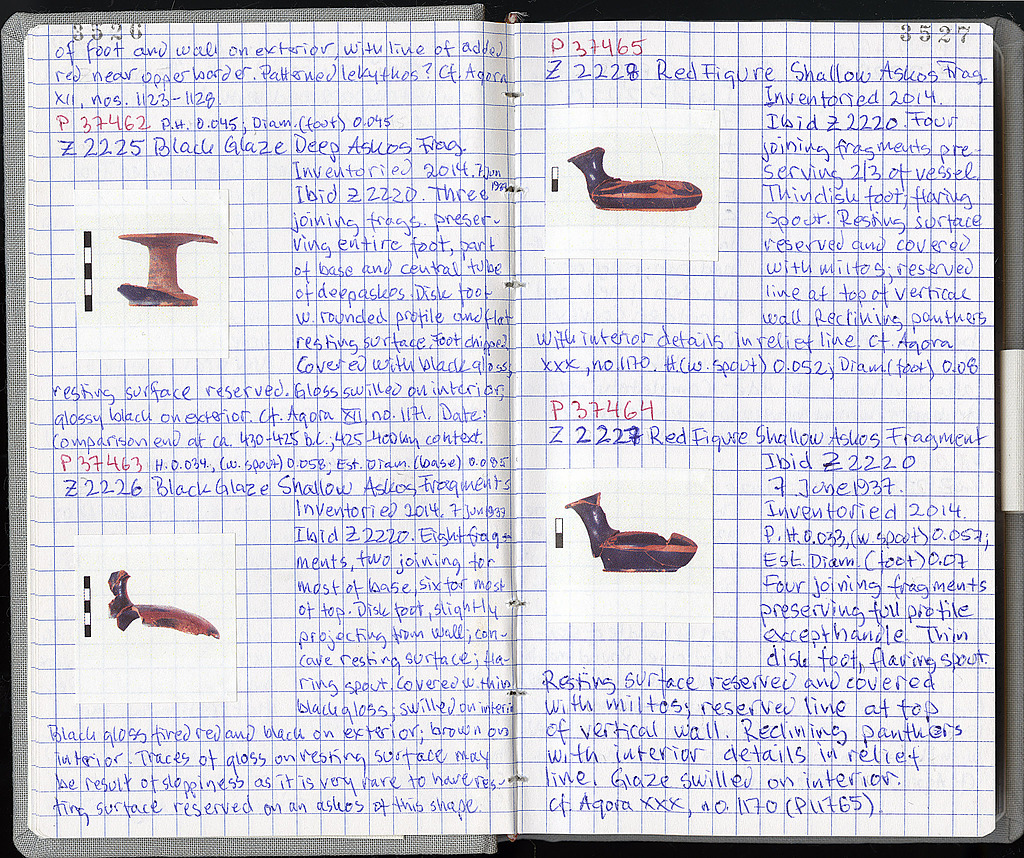 3526
of foot and wall on exterior, with line of added
red near upper border. Patterned lekythos? Cf. Agora
XII, nos. 1123-1128.
P 37462 P.H. 0.045; Diam.(foot) 0.045
Z 2225 Black Glaze Deep Askos Frag.
Inventoried 2014. 7 Jun
1937
Ibid Z 2220. Three
joining frags. preser-
ving entire foot, part
of base and central tube
of deep askos. Disk foot
w. rounded profile and flat
resting surface. Foot chipped.
Covered with black gloss,
resting surface reserved. Gloss swilled on interior,
glossy black on exterior. Cf. Agora XII, no. 1171. Date:
Comparison end at ca. 430-425 b.c.; 425-400 by context.
P 37463 H. 0.034, (w. spout) 0.058; Est. Diam. (base) 0.085
Z 2226 Black Glaze Shallow Askos Fragments
Inventoried 2014. 7 Jun 1937
Ibid Z 2220. Eight frag-
ments, two joining for
most of base, six for most
of top. Disk foot, slightly
projecting from wall; con-
cave resting surface; fla-
ring spout. Covered w. thin
black gloss; swilled on interior
Black gloss fired red and black on exterior; brown on
interior. Traces of gloss on resting surface may
be result of sloppiness as it is very rare to have res-
ting surface reserved on an askos of this shape.
3527
P 37465
Z 2228 Red Figure Shallow Askos Frag.
Inventoried 2014.
Ibid Z 2220. Four
joining fragments pre-
serving 2/3 of vessel.
Thin disk foot; flaring
spout. Resting surface
reserved and covered
with miltos; reserved
line at top of vertical
wall. Reclining panthers
with interior details in relief line. Cf. Agora
XXX, no. 1170. H. (w. spout) 0.052; Diam. (foot) 0.08
P 37464
Z 2227 Red Figure Shallow Askos Fragment
Ibid Z 2220
7 June 1937.
Inventoried 2014.
P.H. 0.033, (w. spout) 0.057;
Est. Diam. (foot) 0.07
Four joining fragments
preserving full profile
except handle. Thin
disk foot, flaring spout.
Resting surface reserved and covered
with miltos; reserved line at top
of vertical wall. Reclining panthers
with interior details in relief
line. Glaze swilled on interior.
Cf. Agora XXX, no. 1170 (P 11765).